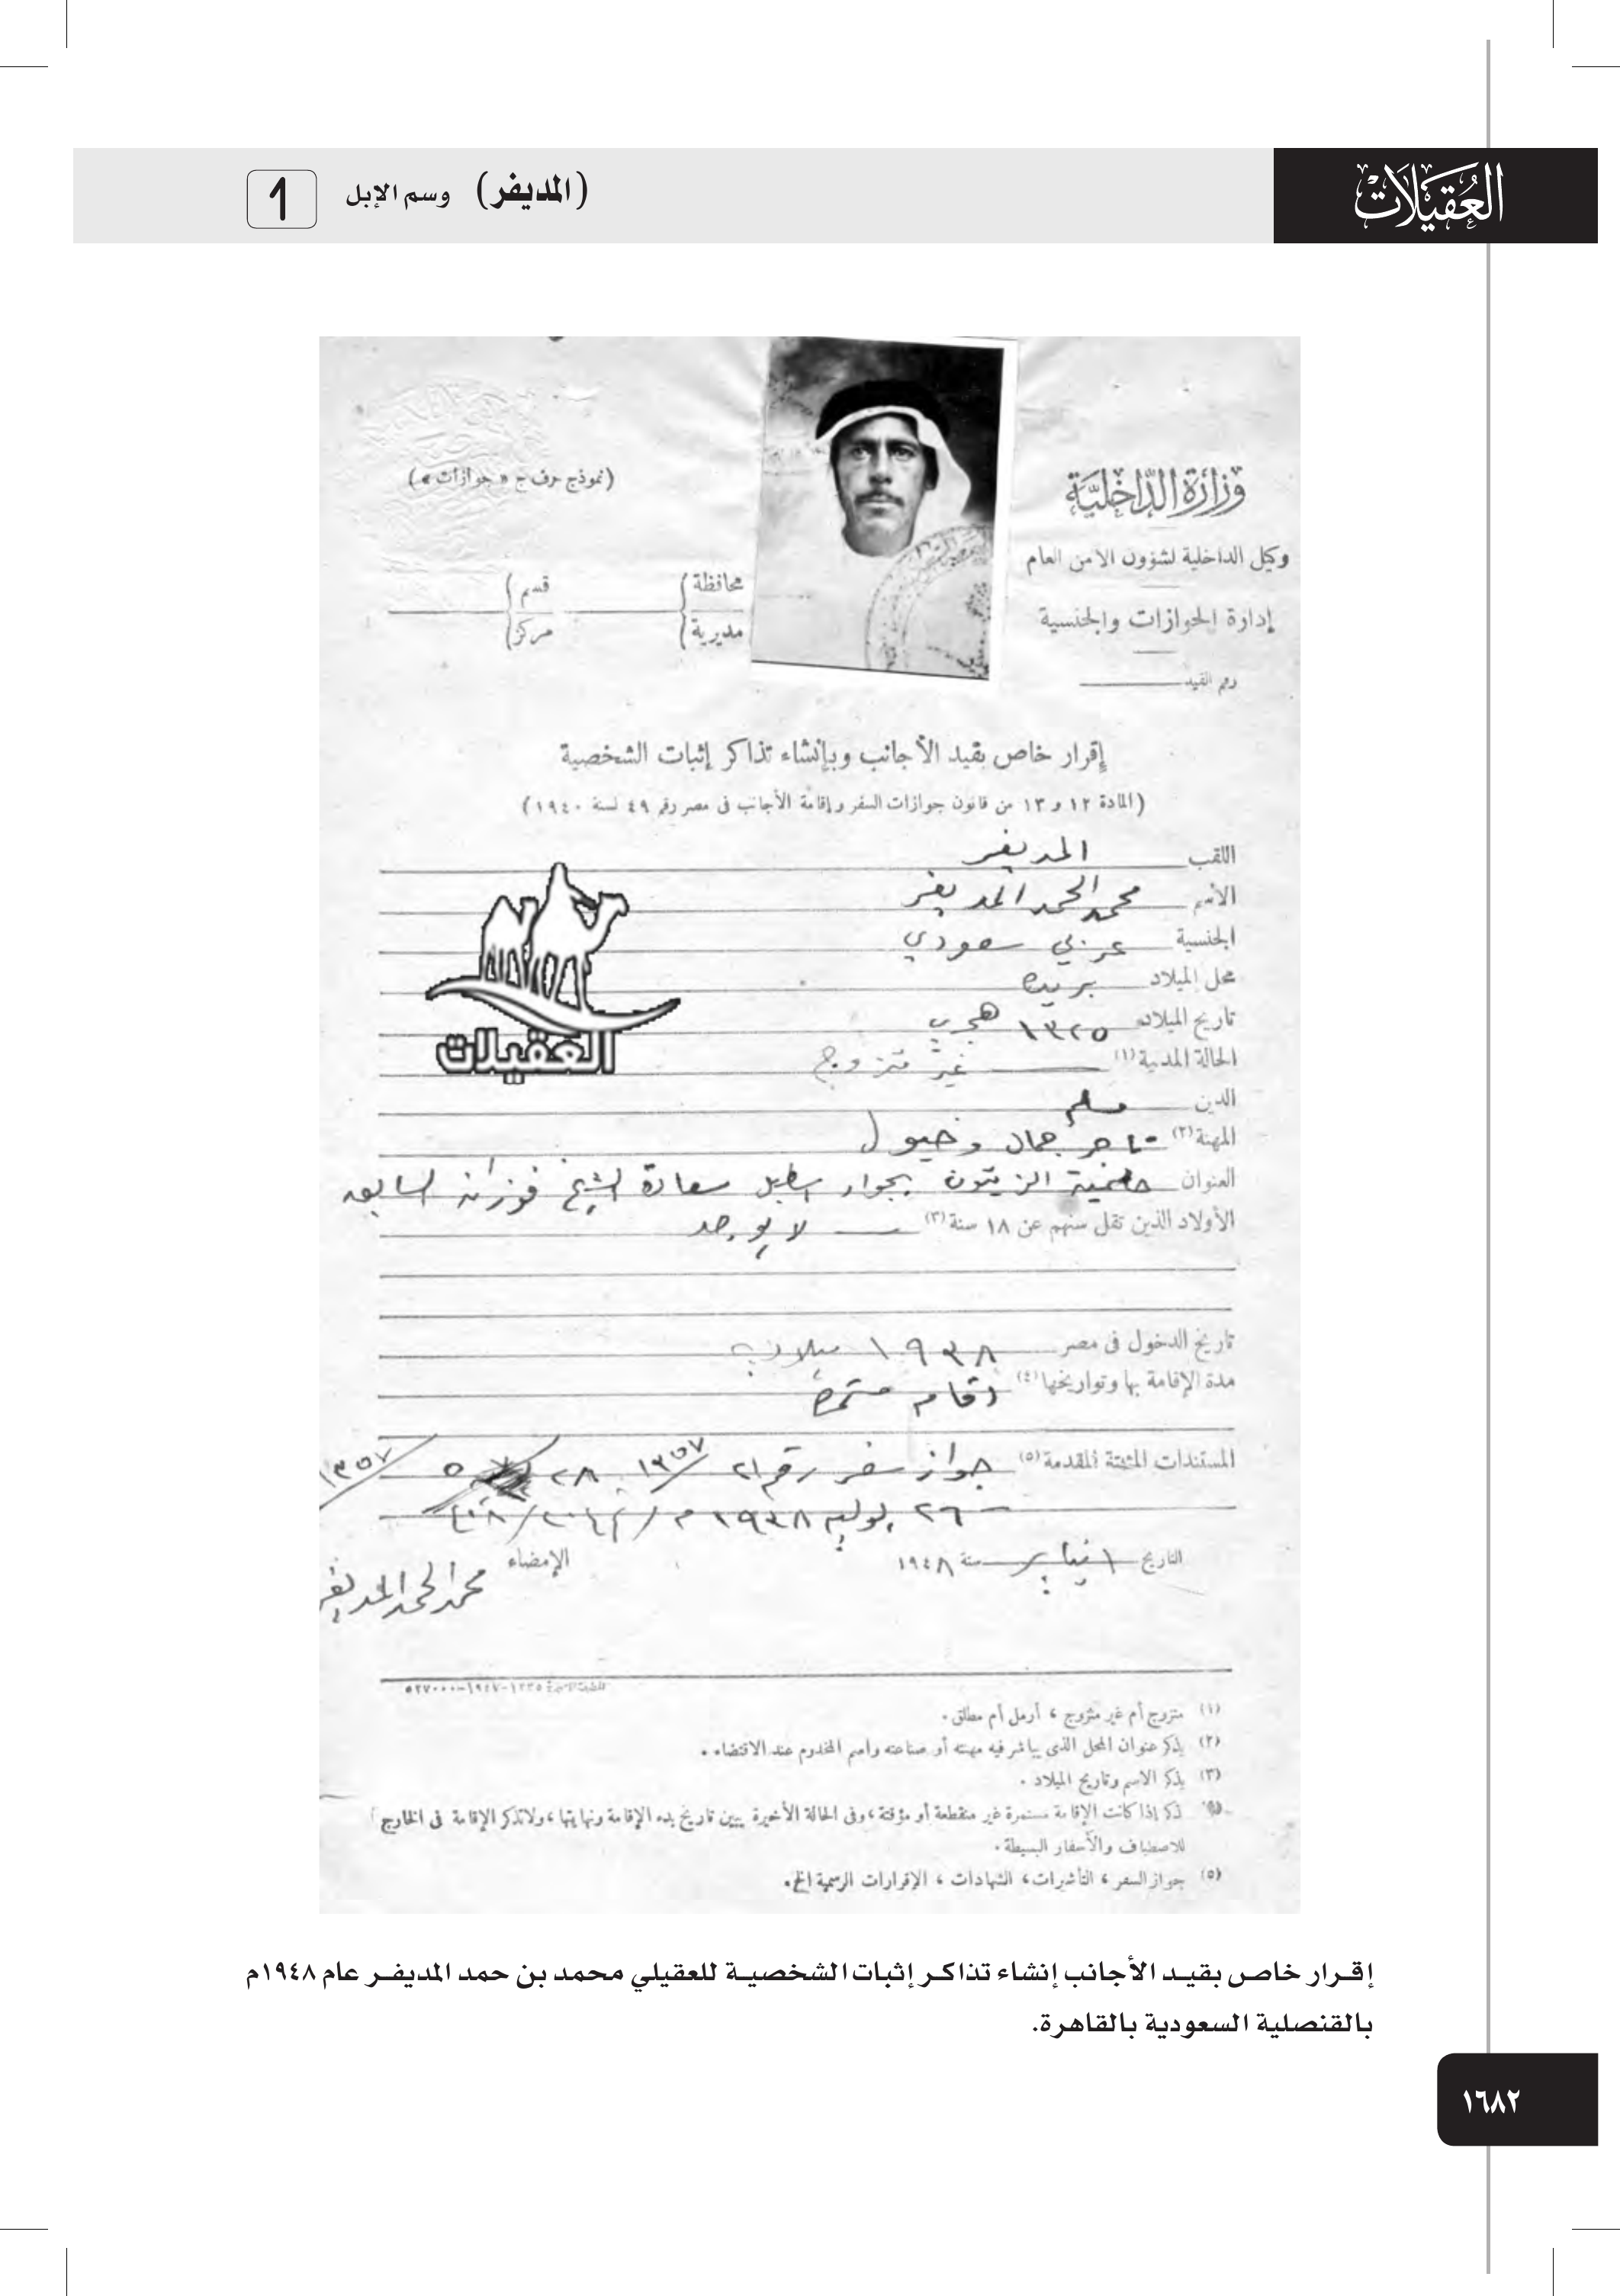 العُقَيْلَاتْ
(المديفر) وسم الإبل
وزارة الداخلية
(نموذج حرف ج «جوازات»)
وكيل الداخلية لشؤون الأمن العام
محافظة
مديرية
قسم
مركز
إدارة الجوازات والجنسية
رقم القيد
إقرار خاص بقيد الأجانب وبإنشاء تذاكر إثبات الشخصية
(المادة ١٢ و ١٣ من قانون جوازات السفر وإقامة الأجانب فى مصر رقم ٤٩ لسنة ١٩٤٠)
اللقب المديفر
الاسم محمد الحمد المديفر
الجنسية عربي سعودي
محل الميلاد بريده
تاريخ الميلاد ١٣٢٥ هجري
الحالة المدنية (١) غير متزوج
العقيلات
الدين مسلم
المهنة (٢) تاجر جمال وخيول
العنوان حلمية الزيتون بجوار اسطبل سعادة الشيخ فوزان السابق
الأولاد الذين تقل سنهم عن ١٨ سنة (٣) لا يوجد
تاريخ الدخول فى مصر ١٩٣٨ ميلادية
مدة الإقامة بها وتواريخها (٤) مستمرة
المستندات المثبتة المقدمة (٥) جواز سفر رقم ٢١ ١٣٥٧ ٢٨ ٥ ١٣٥٧
٢٦ يوليه ١٩٣٨ م
التاريخ ١ يناير سنة ١٩٤٨
الإمضاء
محمد الحمد المديفر
(١) متزوج أم غير متزوج ، أرمل أم مطلق .
(٢) يذكر عنوان المحل الذى يباشر فيه مهنته أو صناعته واسم المخدوم عند الاقتضاء .
(٣) يذكر الاسم وتاريخ الميلاد .
ذكر إذا كانت الإقامة مستمرة غير منقطعة أو مؤقتة ، وفى الحالة الأخيرة يبين تاريخ بدء الإقامة ونهايتها ، ولا تذكر الإقامة فى الخارج
للاصطياف والأسفار البسيطة .
(٥) جواز السفر ، التأشيرات ، الشهادات ، الإقرارات الرسمية الخ .
إقرار خاص بقيد الأجانب إنشاء تذاكر إثبات الشخصية للعقيلي محمد بن حمد المديفر عام ١٩٤٨م
بالقنصلية السعودية بالقاهرة.
١٦٨٢